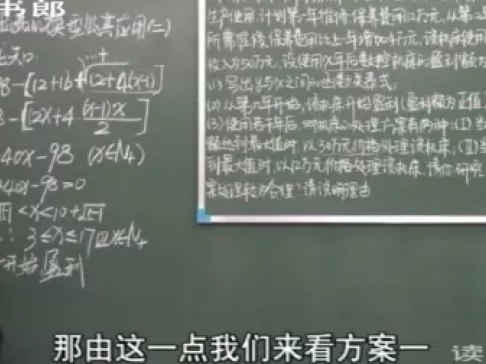 书郎
模型及其应用(二)
98-[12+16+…+12+4(x-1)]
[12x+4·(x-1)x/2]
40x-98 (x∈N+)
+40x-98=0
<x<10+√51
3≤x≤17且x∈N+
开始盈利
生产使用,计划第一年维修、保养费用12万元,从第二
所需维修、保养费用比上一年增加4万元,该机床使用
收入为50万元,设使用x年后数控机床的盈利额为
(1)写出y与x之间的函数关系式;
(2)从第几年开始,该机床开始盈利(盈利额为正值)
(3)使用若干年后,对机床的处理方案有两种:(Ⅰ)当
额达到最大值时,以30万元价格处理该机床;(Ⅱ)当
到最大值时,以12万元价格处理该机床,请你研究
案处理较为合理?请说明理由
那由这一点我们来看方案一
读